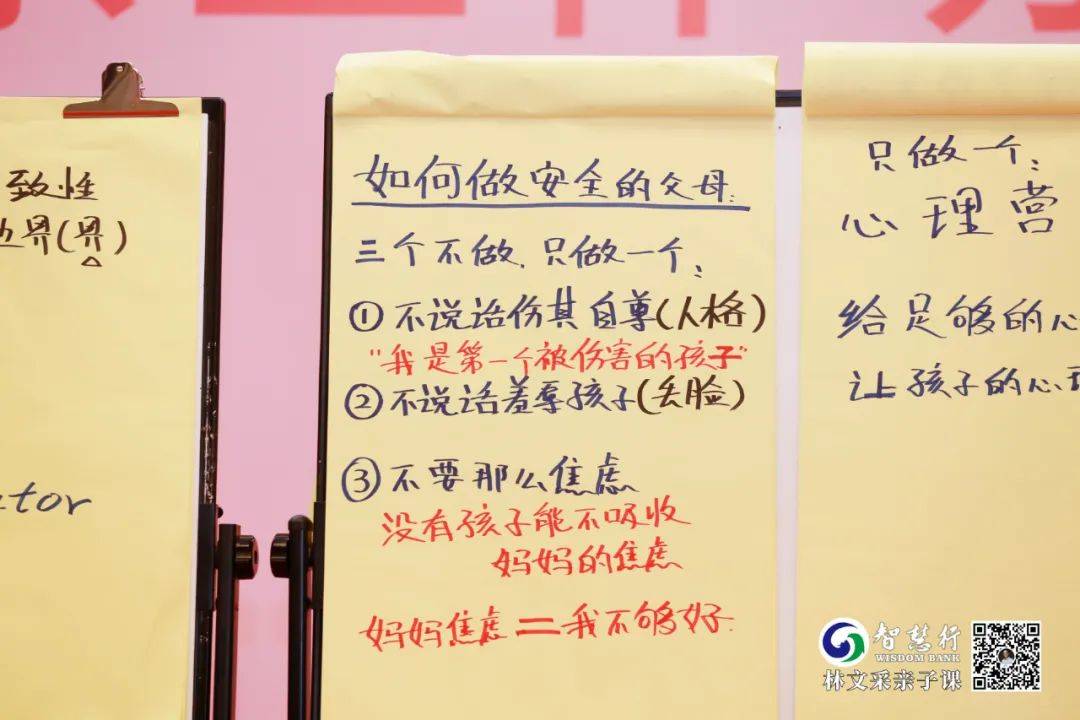 致性
界(界)
tor
如何做安全的父母:
三个不做,只做一个:
①不说话伤其自尊(人格)
"我是第一个被伤害的孩子"
②不说话羞辱孩子(丢脸)
③不要那么焦虑
没有孩子能不吸收
妈妈的焦虑
妈妈焦虑=我不够好.
只做一个:
心理营
给足够的心
让孩子的心理
智慧行
WISDOM BANK
林文采亲子课